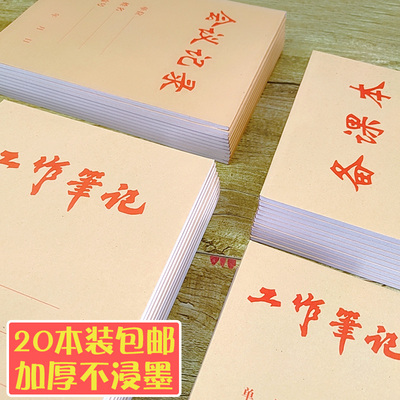 会议记录
备课本
工作筆记
工作筆记
单
20本装包邮
加厚不浸墨